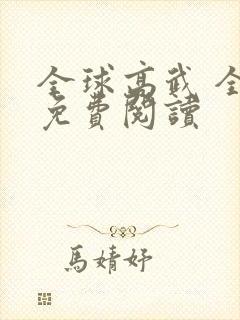 全球高武 全
免費閱讀
馬婧妤